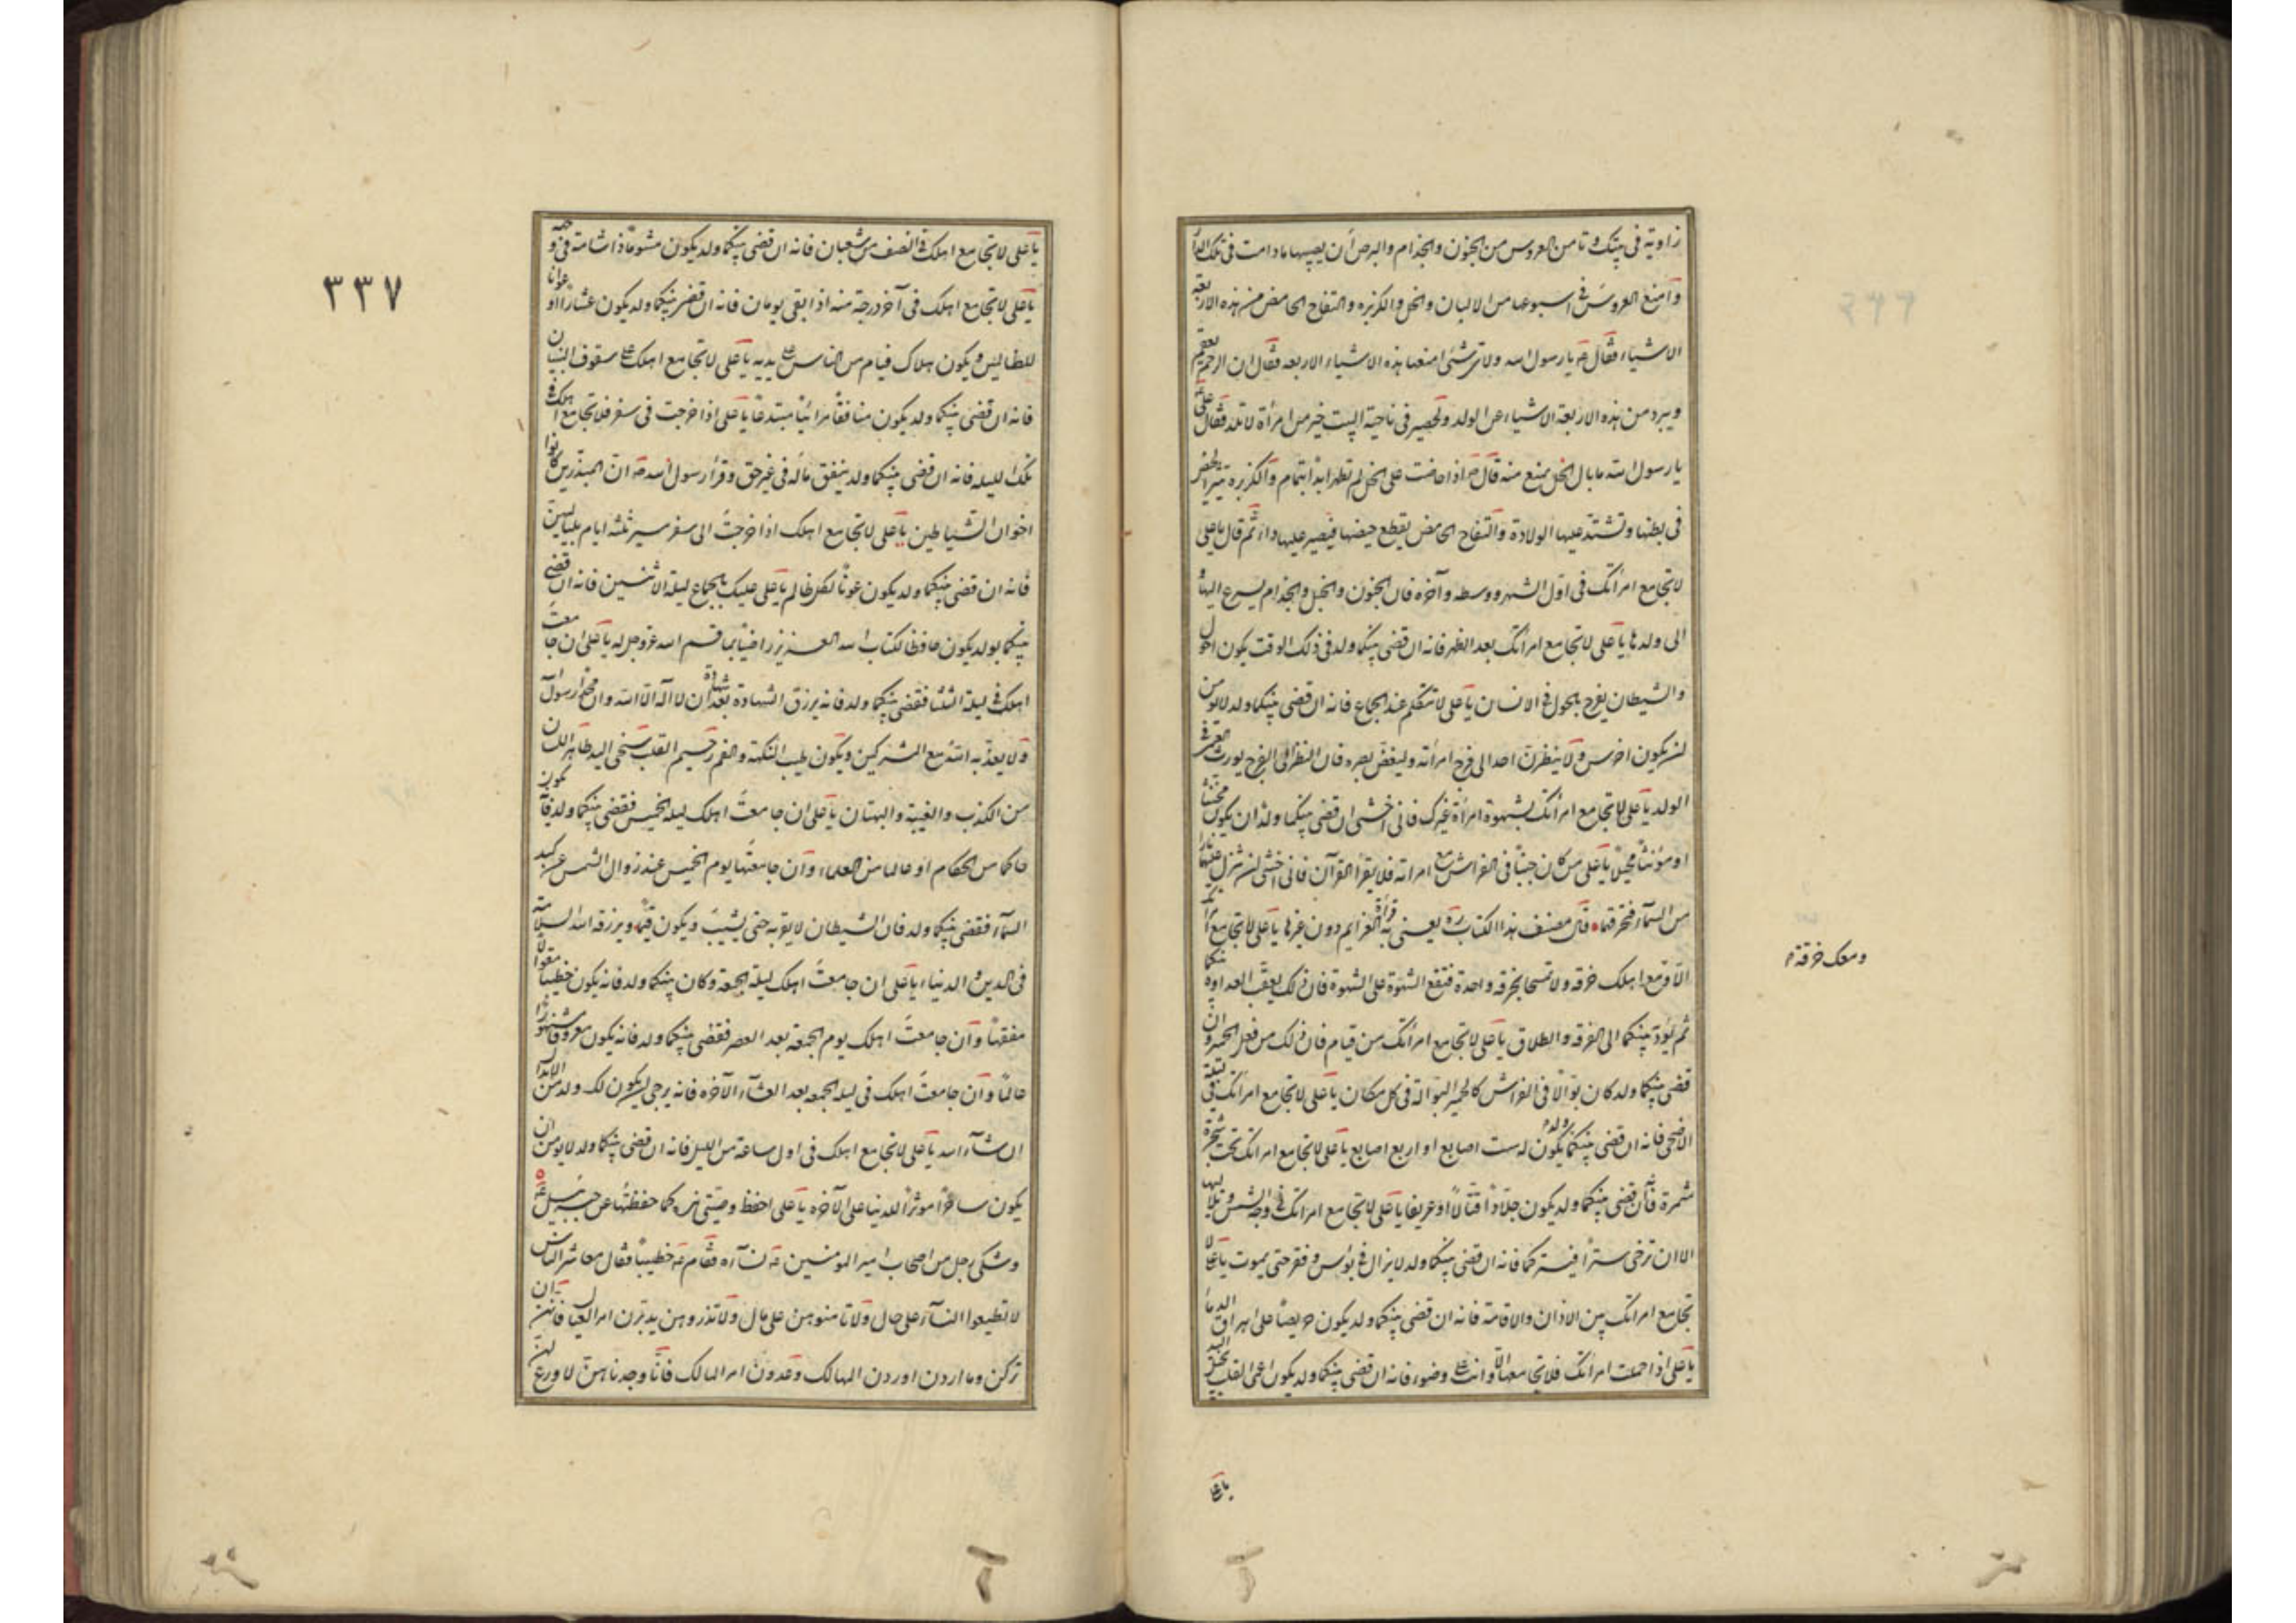 زاوية فى بيتك وتامن العروس من الجنون والجذام والبرص أن يصيبها ما دامت فى تلك الدار
وامنع العروس فى اسبوعها من الالبان والخل والكزبره والتفاح الحامض من هذه الاربعة
الاشياء فقال ع يا رسول الله ولاى شئ امنعها هذه الاشياء الاربعه فقال لان الرحم يعقم
ويبرد من هذه الاربعة الاشياء عن الولد ولحصير فى ناحية البيت خير من امرأة لا تلد فقال على
يا رسول الله ما بال الخل يمنع منه قال ص اذا حاضت على الخل لم تطهر ابداً بتمام والكزبره تثير الحيض
فى بطنها وتشتد عليها الولادة والتفاح الحامض يقطع حيضها فيصير عليها داء ثم قال يا على
لا تجامع امرأتك فى اول الشهر ووسطه وآخره فان الجنون والخبل والجذام يسرع اليها و
الى ولدها يا على لا تجامع امرأتك بعد الظهر فانه ان قضى بينكما ولد فى ذلك الوقت يكون احول
والشيطان يفرح بالحول فى الانسان يا على لا تتكلم عند الجماع فانه ان قضى بينكما ولد لا يؤمن
ان يكون اخرس ولا ينظرن احد الى فرج امرأته وليغض بصره فان النظر الى الفرج يورث العمى فى
الولد يا على لا تجامع امرأتك بشهوة امرأة غيرك فانى اخشى ان قضى بينكما ولد ان يكون مخنثا
او مؤنثاً مخبلاً يا على من كان جنباً فى الفراش مع امرأته فلا يقرأ القرآن فانى اخشى ان تنزل عليهما نار
من السمآء فتحرقهما قال مصنف هذا الكتاب ره يعنى به قراءة العزايم دون غيرها يا على لا تجامع امرأتك
الا ومع اهلك خرقه ولا تمسحا بخرقه واحدة فتقع الشهوة على الشهوة فان ذلك يعقب العداوة بينكما
ومعك خرقة
ثم يؤدّيكما الى الفرقه والطلاق يا على لا تجامع امرأتك من قيام فان ذلك من فعل الحمير وان
قضى بينكما ولد كان بوّالاً فى الفراش كالحمير البوالة فى كل مكان يا على لا تجامع امرأتك فى ليلة
الاضحى فانه ان قضى بينكما ولد يكون له ست اصابع او اربع اصابع يا على لا تجامع امرأتك تحت شجرة
مثمرة فانه ان قضى بينكما ولد يكون جلاداً قتالاً او عريفا يا على لا تجامع امرأتك فى وجه الشمس وتلاليها
الا ان ترخى ستراً فيستركما فانه ان قضى بينكما ولد لا يزال فى بؤس وفقر حتى يموت يا على لا
تجامع امرأتك بين الاذان والاقامة فانه ان قضى بينكما ولد يكون حريصاً على اهراق الدماء
يا على اذا حملت امرأتك فلا تجامعها الا وانت على وضوء فانه ان قضى بينكما ولد يكون اعمى القلب بخيل اليد
يا على
٣٣٧
يا على لا تجامع اهلك فى النصف من شعبان فانه ان قضى بينكما ولد يكون مشوهاً ذا شامة فى وجهه
يا على لا تجامع اهلك فى آخر درجة منه اذا بقى يومان فانه ان قضى بينكما ولد يكون عشاراً او عونا
للظالمين ويكون هلاك فيام من الناس على يديه يا على لا تجامع اهلك على سقوف البنيان
فانه ان قضى بينكما ولد يكون منافقاً مرائياً مبتدعاً يا على اذا خرجت فى سفر فلا تجامع اهلك فى
تلك الليله فانه ان قضى بينكما ولد ينفق ماله فى غير حق وقرأ رسول الله ص ان المبذرين كانوا
اخوان الشياطين يا على لا تجامع اهلك اذا خرجت الى سفر مسير ثلثه ايام بلياليهن
فانه ان قضى بينكما ولد يكون عوناً لكل ظالم يا على عليك بالجماع ليلة الاثنين فانه ان قضى
بينكما ولد يكون حافظا لكتاب الله العزيز راضياً بما قسم الله عز وجل له يا على ان جامعت
اهلك فى ليلة الثلثا فقضى بينكما ولد فانه يرزق الشهادة بعد شهادة ان لا اله الا الله وان محمدا رسول الله
ولا يعذبه الله مع المشركين ويكون طيب النكهة والفم رحيم القلب سخى اليد طاهر اللسان
من الكذب والغيبة والبهتان يا على ان جامعت اهلك ليله الخميس فقضى بينكما ولد فانه يكون
حاكما من الحكام او عالما من العلماء وان جامعتها يوم الخميس عند زوال الشمس عن كبد
السمآء فقضى بينكما ولد فان الشيطان لا يقربه حتى يشيب ويكون قيماً ويرزقه الله السلامة
فى الدين والدنيا يا على ان جامعت اهلك ليلة الجمعة وكان بينكما ولد فانه يكون خطيبا قوالا
مفوهاً وان جامعت اهلك يوم الجمعة بعد العصر فقضى بينكما ولد فانه يكون معروفا مشهورا
عالماً وان جامعت اهلك فى ليلة الجمعه بعد العشآء الآخره فانه يرجى ان يكون لك ولد من الابدال
ان شآء الله يا على لا تجامع اهلك فى اول ساعة من الليل فانه ان قضى بينكما ولد لا يؤمن ان
يكون ساحراً مؤثراً للدنيا على الآخره يا على احفظ وصيتى هذه كما حفظتها عن جبرئيل ع
وشكى رجل من اصحاب امير المومنين ع نسآءه فقام ع خطيباً فقال معاشر الناس
لا تطيعوا النسآء على حال ولا تامنوهن على مال ولا تذروهن يدبرن امر العيال فانهن ان
تركن وما اردن اوردن المهالك وعدون امر المالك فانا وجدناهن لا ورع لهن